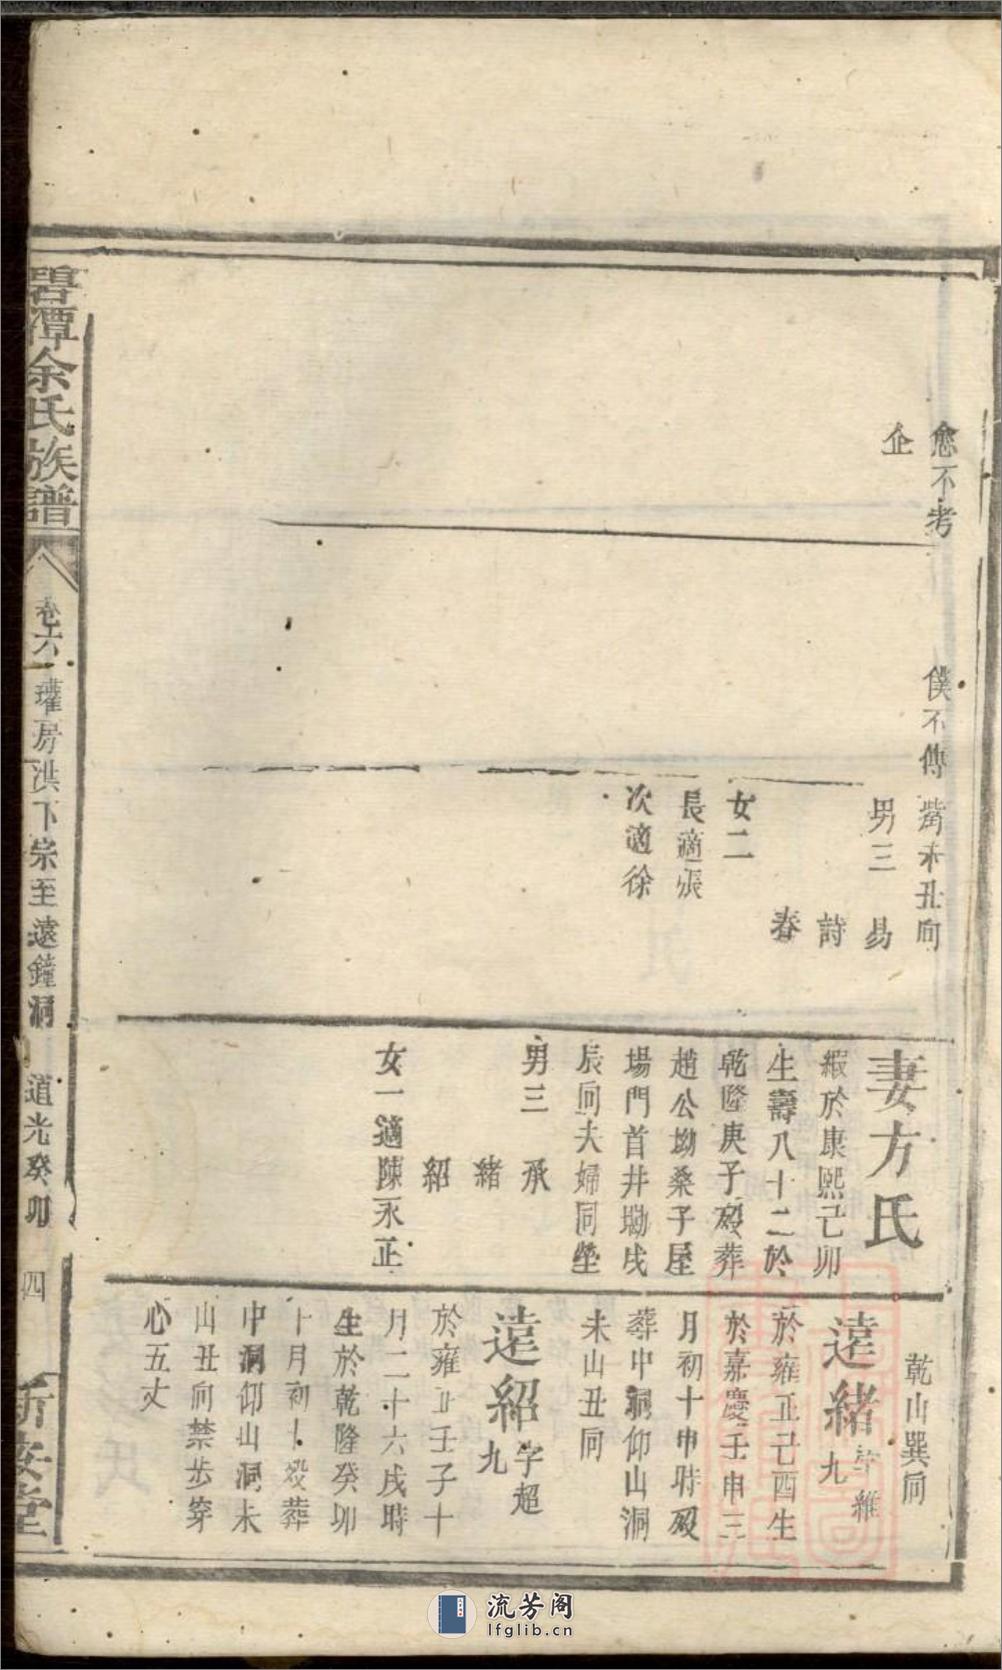 愈不考
企
僕不傳
嵜未丑向
男三 易
詩
春
女二
長適張
次適徐
妻方氏
緞於康熙己卯
生壽八十二於
乾隆庚子歿葬
趙公坳桑子屋
場門首井坳戌
辰向夫婦同塋
男三 承
緒
紹
女一適陳永正
乾山巽向
遠緒字維
九
於雍正己酉生
於嘉慶壬申三
月初十申時歿
葬中洞仰山洞
未山丑向
遠紹字超
九
於雍正壬子十
月二十六戌時
生於乾隆癸卯
十月初十歿葬
中洞仰山洞未
山丑向禁步穿
心五丈
碧潭余氏族譜
卷六 瓘房洪下宗至遠鐘洞 道光癸卯
四
新安堂
流芳阁
lfglib.cn